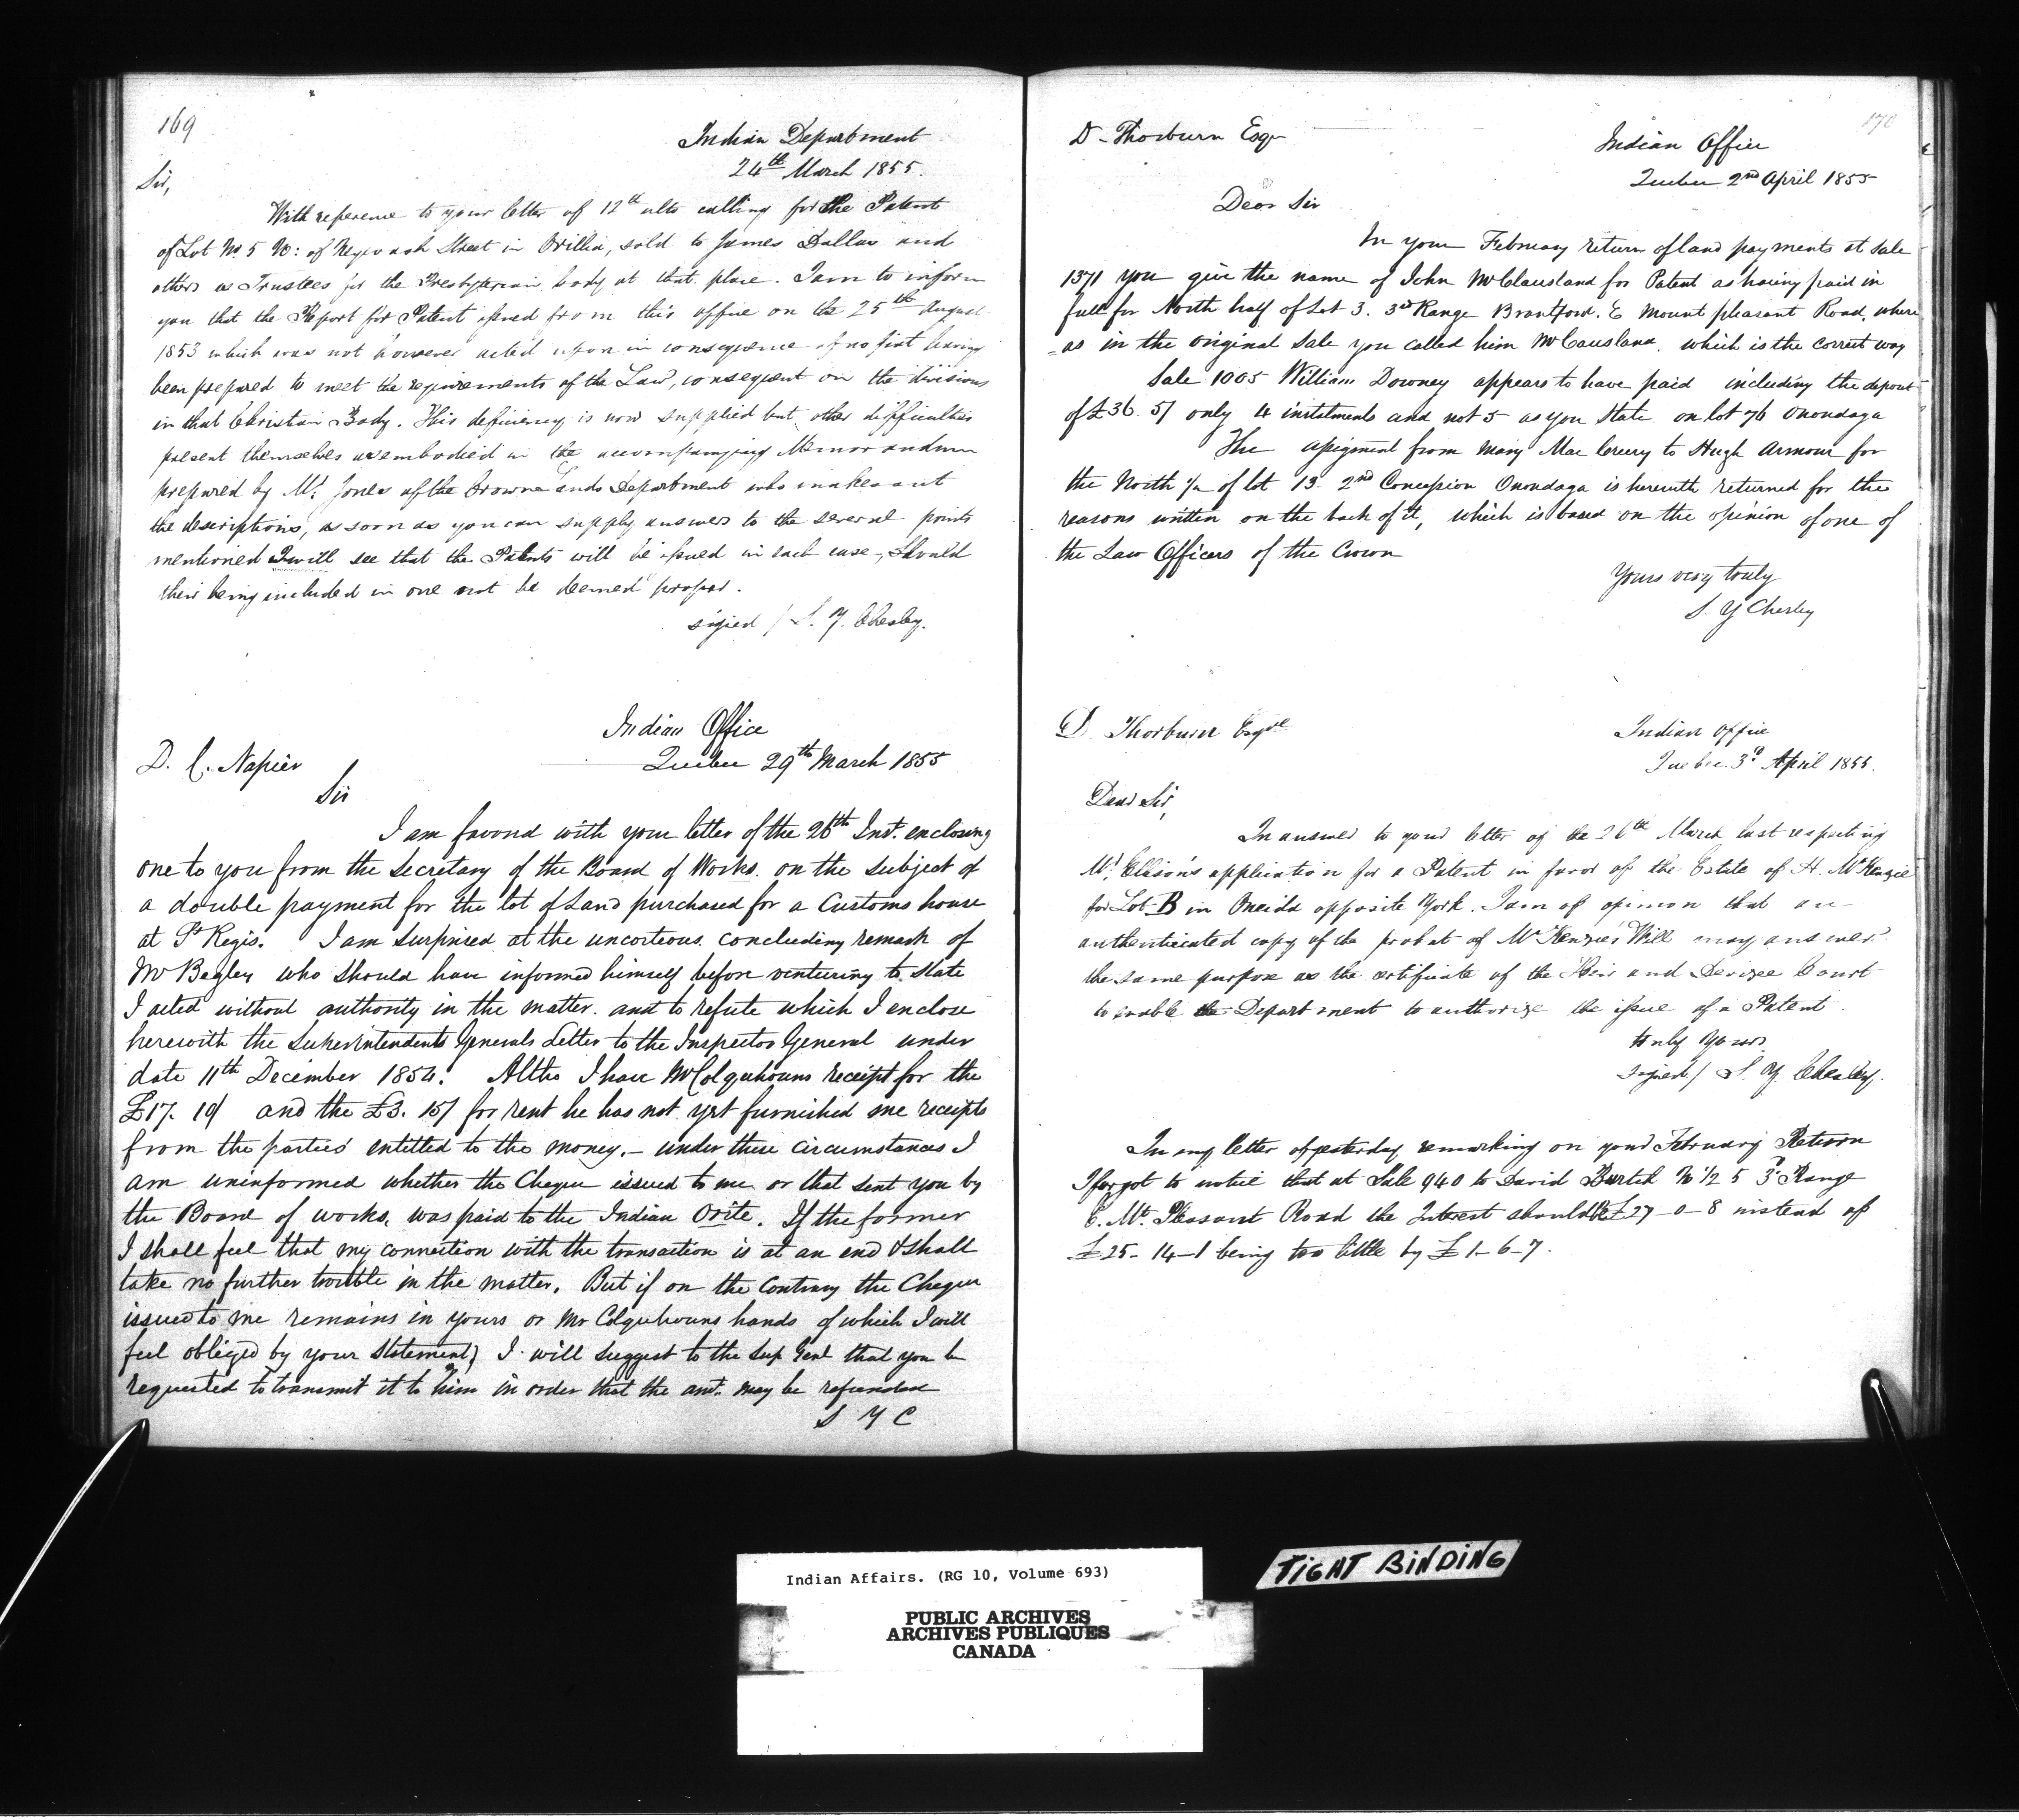 169
Indian Department
24th March 1855.
Sir,
With reference to your letter of 12th ulto calling for the Patent
of Lot No. 5 W: of Street in Orillia, sold to James Dallas and
others as Trustees for the Presbyterian body at that place. I am to inform
you that the Report for Patent issued from this office on the 25th August
1853 which was not however acted upon in consequence of no fiat having
been prepared to meet the requirements of the Law, consequent on the divisions
in that Christian Body. This deficiency is now supplied but other difficulties
present themselves as embodied in the accompanying Memorandum
prepared by Mr. Jones of the Crown Lands Department who makes out
the descriptions, as soon as you can supply answers to the several points
mentioned I will see that the Patents will be issued in each case, should
their being included in one not be deemed proper.
signed / S. Y. Chesley.
Indian Office
Quebec 29th March 1855
D. C. Napier
Sir
I am favord with your letter of the 26th Inst. enclosing
one to you from the Secretary of the Board of Works. on the subject of
a double payment for the lot of Land purchased for a Customs house
at St Regis. I am surprised at the uncorteous concluding remark of
Mr Begley who should have informed himself before venturing to state
I acted without authority in the matter. and to refute which I enclose
herewith the Superintendents Generals Letter to the Inspector General under
date 11th December 1854. Altho I have Mr Colquhouns receipt for the
£17. 19/ and the £3. 15/ for rent he has not yet furnished me receipts
from the parties entitled to the money. - under these circumstances I
am uninformed whether the Cheque issued to me or that sent you by
the Board of works, was paid to the Indian Orite. If the former
I shall feel that my connection with the transaction is at an end & shall
take no further trouble in the matter. But if on the contrary the Cheque
issued to me remains in yours or Mr Colquhouns hands of which I will
feel obliged by your statement, I will suggest to the Sup Genl that you be
requested to transmit it to him in order that the amt. may be refunded
S Y C
170
D - Thorburn Esqr
Indian Office
Quebec 2nd April 1855
Dear Sir
In your February return of land payments at Sale
1371 you give the name of John McClausland for Patent as having paid in
full for North half of Lot 3. 3rd Range Brantford. E Mount pleasant Road, where
=as in the original Sale you called him McCausland. which is the correct way
Sale 1005 William Downey appears to have paid including the deposit
of £36. 5/ only 4 instalments and not 5 as you state on lot 76 Onondaga
The assignment from Mary Mac to Hugh Armour for
the North ½ of lot 13. 2nd Concession Onondaga is herewith returned for the
reasons written on the back of it, which is based on the opinion of one of
the Law Officers of the Crown
Yours very truly
S. Y Chesley
D Thorburn Esqre
Indian Office
Quebec. 3d. April 1855.
Dear Sir,
In answer to your letter of the 26th March last respecting
Mr. application for a Patent in favor of the Estate of H. McKenzie
for Lot B in Oneida opposite York. I am of opinion that an
authenticated copy of the probat of McKenzie's Will may answer
the same purpose as the certificate of the Heir and Devizee Court
to enable the Department to authorize the issue of a Patent.
truly yours
signed / S. Y. Chesley.
In my letter of yesterday, remarking on your February Return
I forgot to notice that at Sale 940 to David N ½ 5 3d. Range
E. Mt. Pleasant Road the Interest should be £27-0-8 instead of
£25-14-1 being too little by £1-6-7.
Indian Affairs. (RG 10, Volume 693)
PUBLIC ARCHIVES
ARCHIVES PUBLIQUES
CANADA
TIGHT BINDING